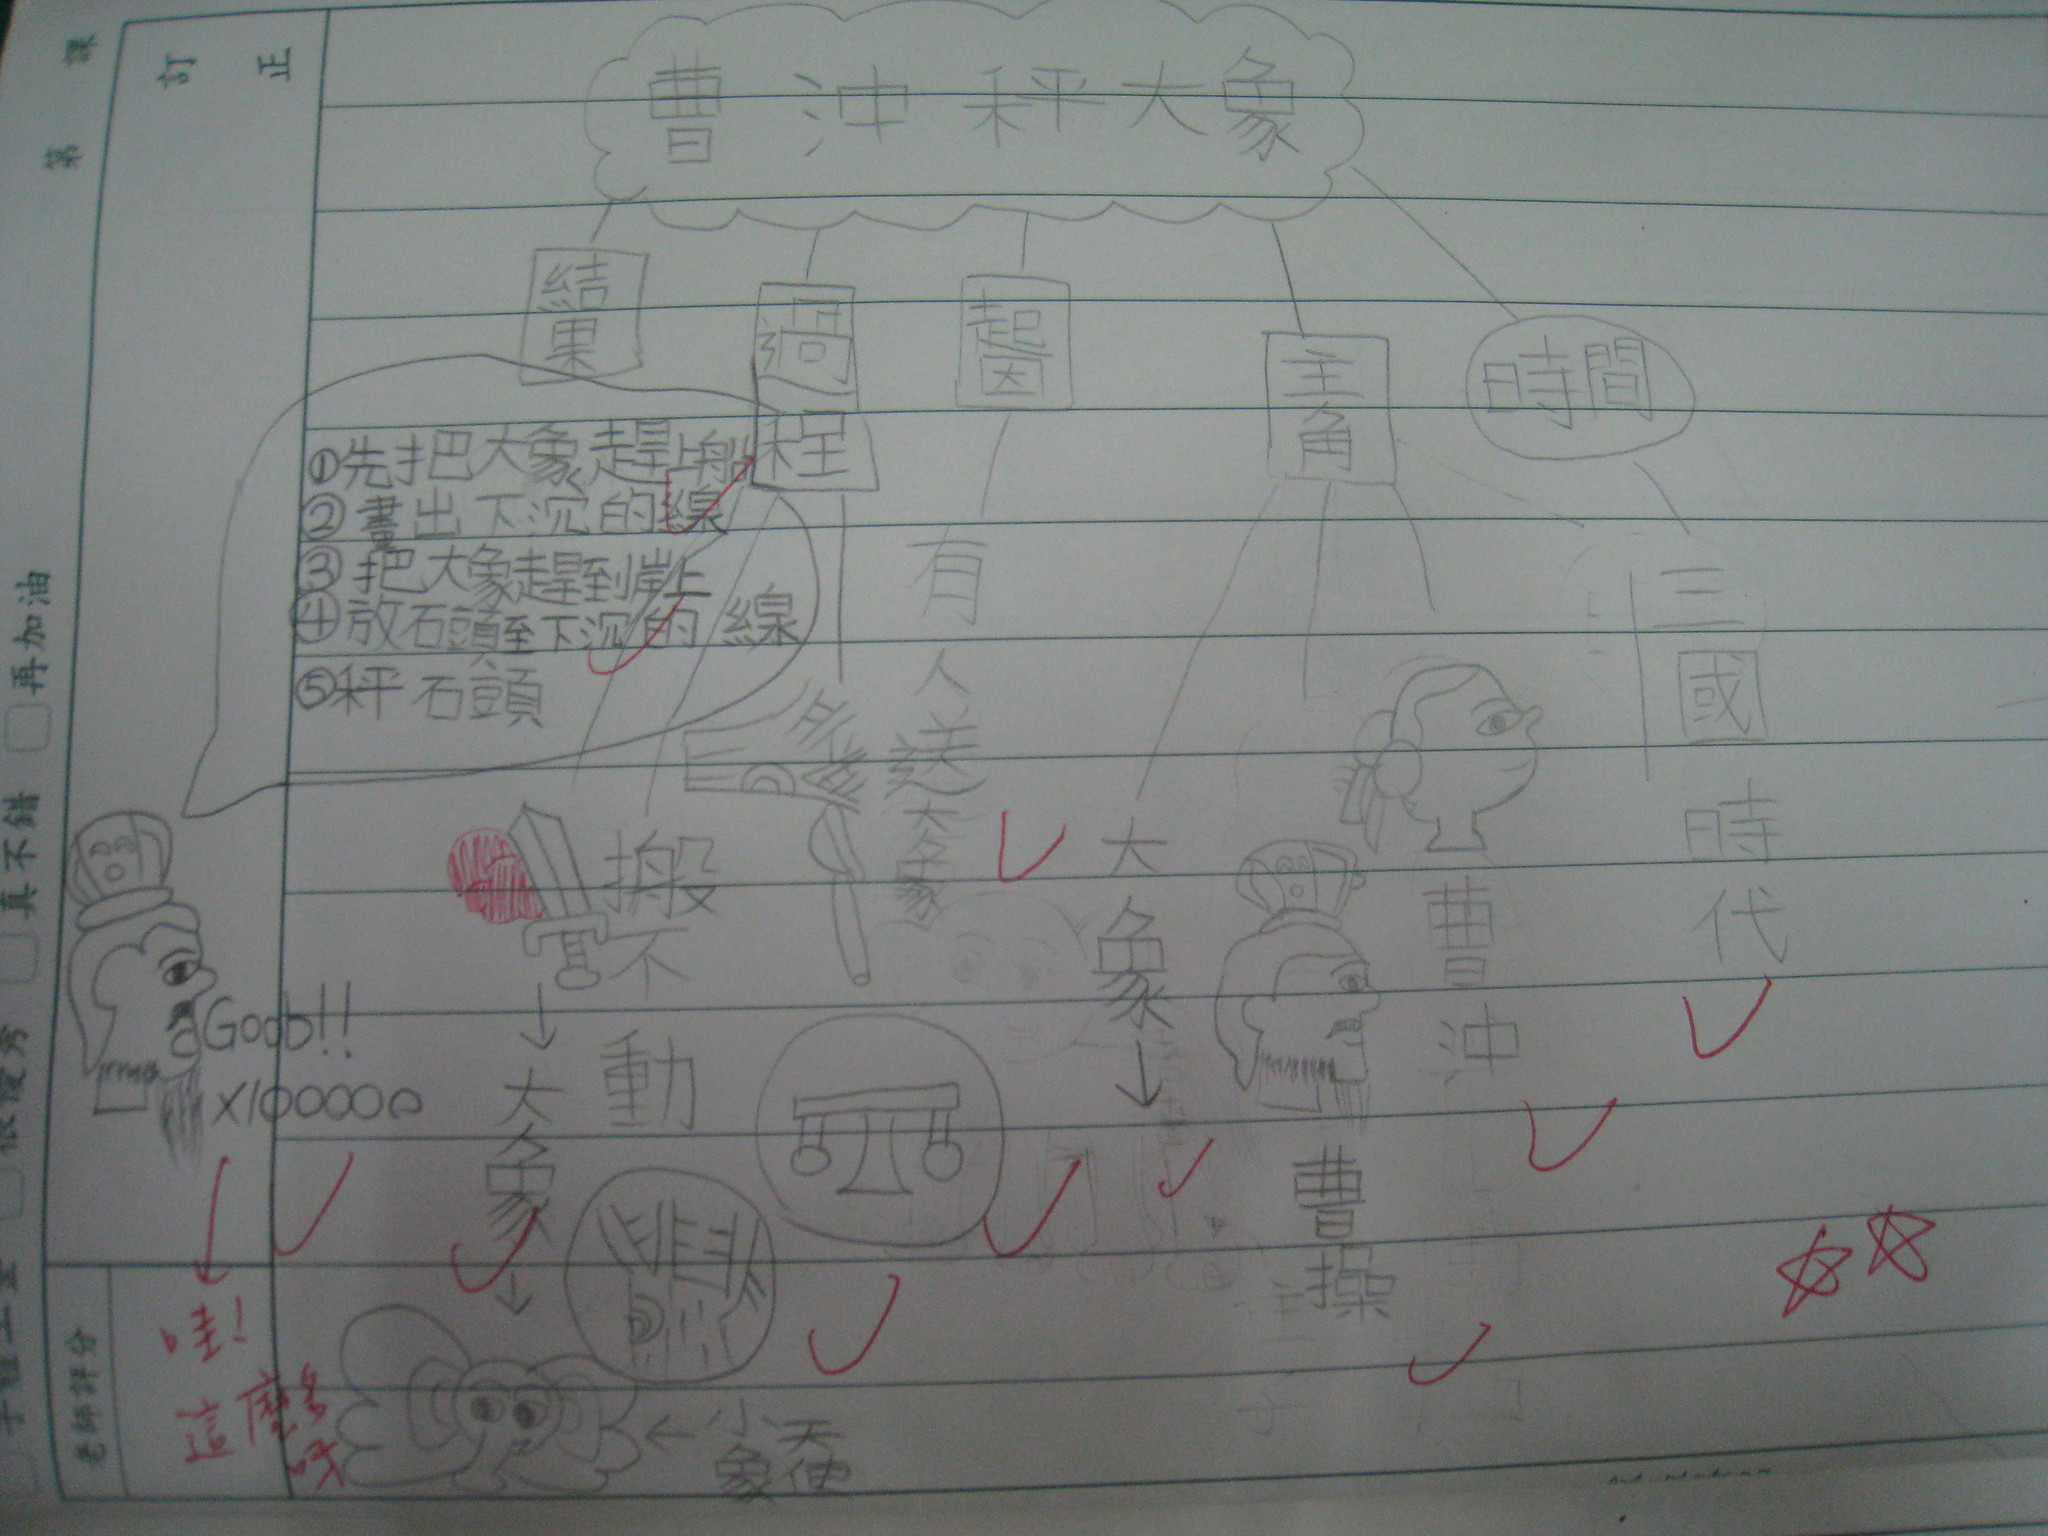 曹沖秤大象
時間
三國時代
主角
曹沖
曹操
大象
起因
有人送大象
過程
搬不動
大象
結果
①先把大象趕上船
②畫出下沉的線
③把大象趕到岸上
④放石頭至下沉的線
⑤秤石頭
Good!!
X100000
小天使
象
哇!
這麼多
呀
訂正
第 課
老師評分
再加油
真不錯
很優秀